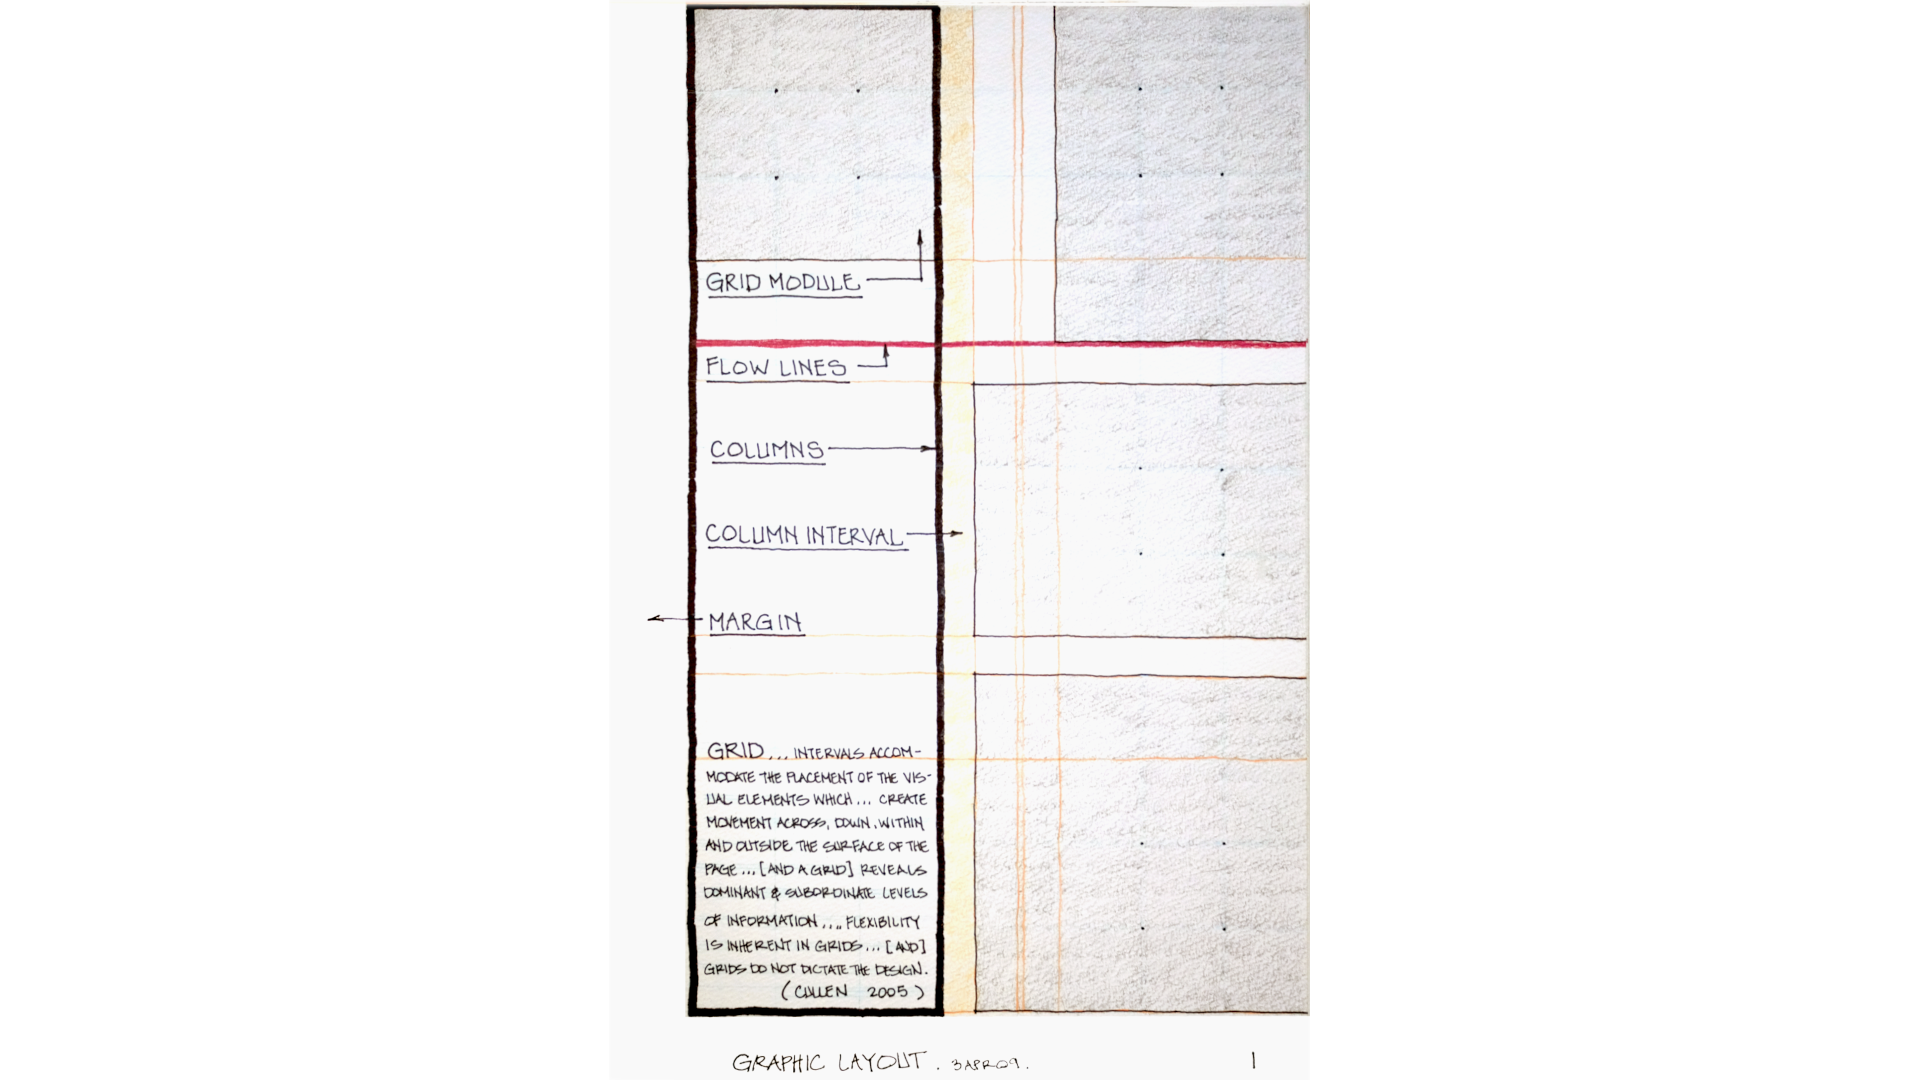 GRID MODULE
FLOW LINES
COLUMNS
COLUMN INTERVAL
MARGIN
GRID... INTERVALS ACCOM-
MODATE THE PLACEMENT OF THE VIS-
UAL ELEMENTS WHICH... CREATE
MOVEMENT ACROSS, DOWN, WITHIN
AND OUTSIDE THE SURFACE OF THE
PAGE... [AND A GRID] REVEALS
DOMINANT & SUBORDINATE LEVELS
OF INFORMATION.... FLEXIBILITY
IS INHERENT IN GRIDS... [AND]
GRIDS DO NOT DICTATE THE DESIGN.
(CULLEN 2005)
GRAPHIC LAYOUT. 3APR09. 1